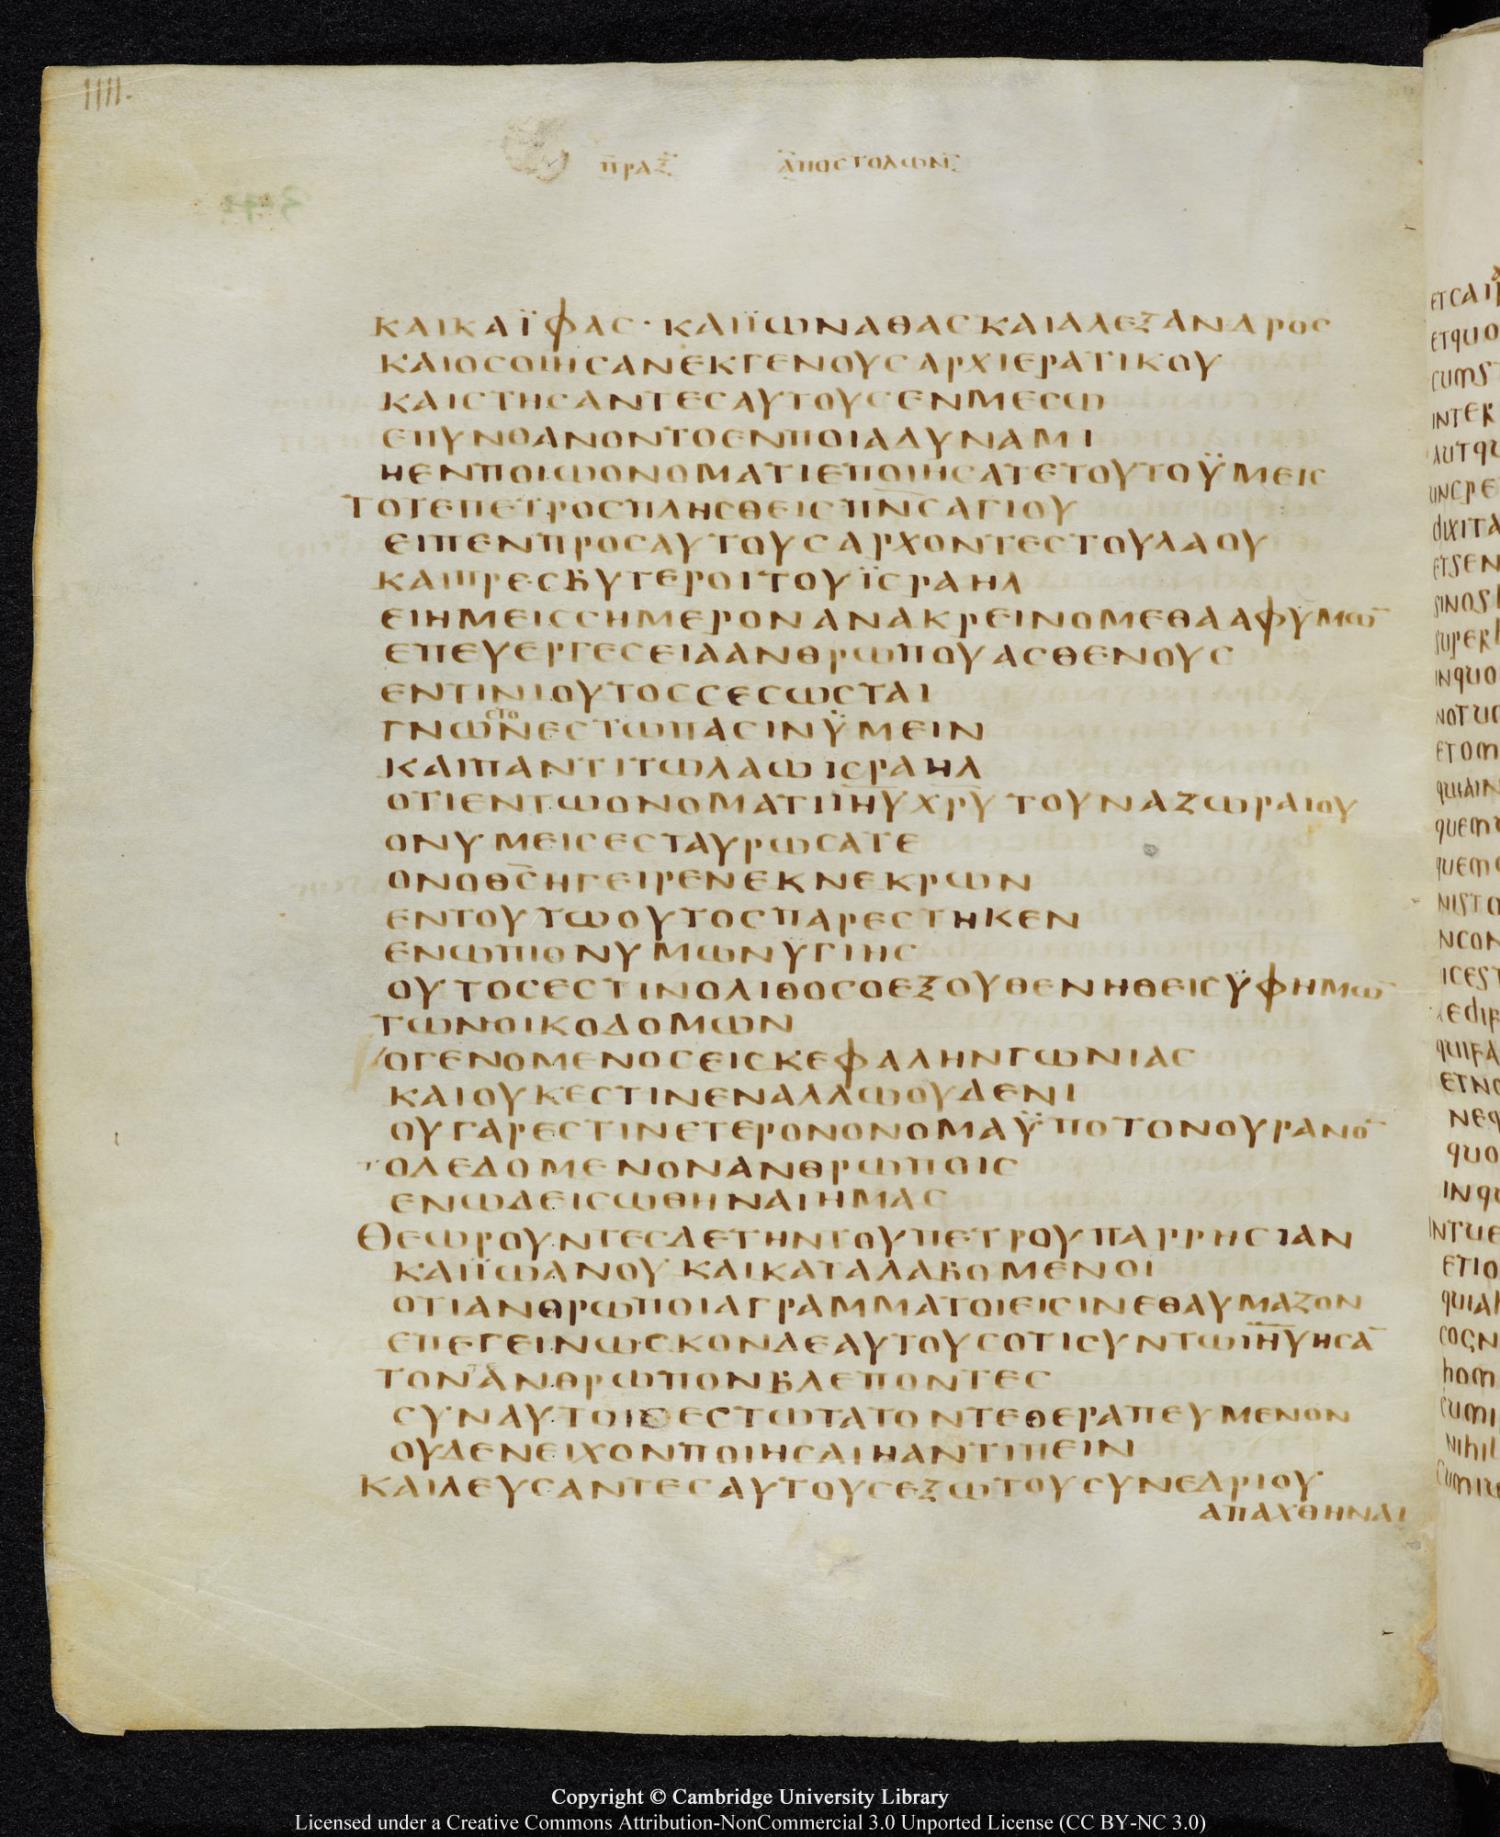 IIII·
ΠΡΑΞ ΑΠΟΣΤΟΛΩΝ
ΚΑΙΚΑΪΦΑϹ·ΚΑΙΪΩΝΑΘΑϹΚΑΙΑΛΕΞΑΝΔΡΟϹ
ΚΑΙΟϹΟΙΗϹΑΝΕΚΓΕΝΟΥϹΑΡΧΙΕΡΑΤΙΚΟΥ
ΚΑΙϹΤΗϹΑΝΤΕϹΑΥΤΟΥϹΕΝΜΕϹΩ
ΕΠΥΝΘΑΝΟΝΤΟΕΝΠΟΙΑΔΥΝΑΜΙ
ΗΕΝΠΟΙΩΟΝΟΜΑΤΙΕΠΟΙΗϹΑΤΕΤΟΥΤΟΫΜΕΙϹ
ΤΟΤΕΠΕΤΡΟϹΠΛΗϹΘΕΙϹΠ̅Ν̅Ϲ̅ΑΓΙΟΥ
ΕΙΠΕΝΠΡΟϹΑΥΤΟΥϹΑΡΧΟΝΤΕϹΤΟΥΛΑΟΥ
ΚΑΙΠΡΕϹΒΥΤΕΡΟΙΤΟΥΪϹΡΑΗΛ
ΕΙΗΜΕΙϹϹΗΜΕΡΟΝΑΝΑΚΡΕΙΝΟΜΕΘΑΑΦΥΜΩ̅
ΕΠΕΥΕΡΓΕϹΕΙΑΑΝΘΡΩΠΟΥΑϹΘΕΝΟΥϹ
ΕΝΤΙΝΙΟΥΤΟϹϹΕϹΩϹΤΑΙ
ΓΝΩϹΤΟΝΕϹΤΩΠΑϹΙΝΫΜΕΙΝ
ΚΑΙΠΑΝΤΙΤΩΛΑΩΙϹΡΑΗΛ
ΟΤΙΕΝΤΩΟΝΟΜΑΤΙΙ̅Η̅Υ̅Χ̅Ρ̅Υ̅ΤΟΥΝΑΖΩΡΑΙΟΥ
ΟΝΥΜΕΙϹΕϹΤΑΥΡΩϹΑΤΕ
ΟΝΟΘ̅Ϲ̅ΗΓΕΙΡΕΝΕΚΝΕΚΡΩΝ
ΕΝΤΟΥΤΩΟΥΤΟϹΠΑΡΕϹΤΗΚΕΝ
ΕΝΩΠΙΟΝΥΜΩΝΥΓΙΗϹ
ΟΥΤΟϹΕϹΤΙΝΟΛΙΘΟϹΟΕΞΟΥΘΕΝΗΘΕΙϹΫΦΗΜΩ̅
ΤΩΝΟΙΚΟΔΟΜΩΝ
ΟΓΕΝΟΜΕΝΟϹΕΙϹΚΕΦΑΛΗΝΓΩΝΙΑϹ
ΚΑΙΟΥΚΕϹΤΙΝΕΝΑΛΛΩΟΥΔΕΝΙ
ΟΥΓΑΡΕϹΤΙΝΕΤΕΡΟΝΟΝΟΜΑΫΠΟΤΟΝΟΥΡΑΝΟ̅
ΤΟΔΕΔΟΜΕΝΟΝΑΝΘΡΩΠΟΙϹ
ΕΝΩΔΕΙϹΩΘΗΝΑΙΗΜΑϹ
ΘΕΩΡΟΥΝΤΕϹΔΕΤΗΝΤΟΥΠΕΤΡΟΥΠΑΡΡΗϹΙΑΝ
ΚΑΙΪΩΑΝΟΥΚΑΙΚΑΤΑΛΑΒΟΜΕΝΟΙ
ΟΤΙΑΝΘΡΩΠΟΙΑΓΡΑΜΜΑΤΟΙΕΙϹΙΝΕΘΑΥΜΑΖΟΝ
ΕΠΕΓΕΙΝΩϹΚΟΝΔΕΑΥΤΟΥϹΟΤΙϹΥΝΤΩΙ̅Η̅Υ̅ΗϹΑ̅
ΤΟΝΤΕΑΝΘΡΩΠΟΝΒΛΕΠΟΝΤΕϹ
ϹΥΝΑΥΤΟΙϹΕϹΤΩΤΑΤΟΝΤΕΘΕΡΑΠΕΥΜΕΝΟΝ
ΟΥΔΕΝΕΙΧΟΝΠΟΙΗϹΑΙΗΑΝΤΙΠΕΙΝ
ΚΑΙΛΕΥϹΑΝΤΕϹΑΥΤΟΥϹΕΞΩΤΟΥϹΥΝΕΔΡΙΟΥ
ΑΠΑΧΘΗΝΑΙ
Copyright © Cambridge University Library
Licensed under a Creative Commons Attribution-NonCommercial 3.0 Unported License (CC BY-NC 3.0)